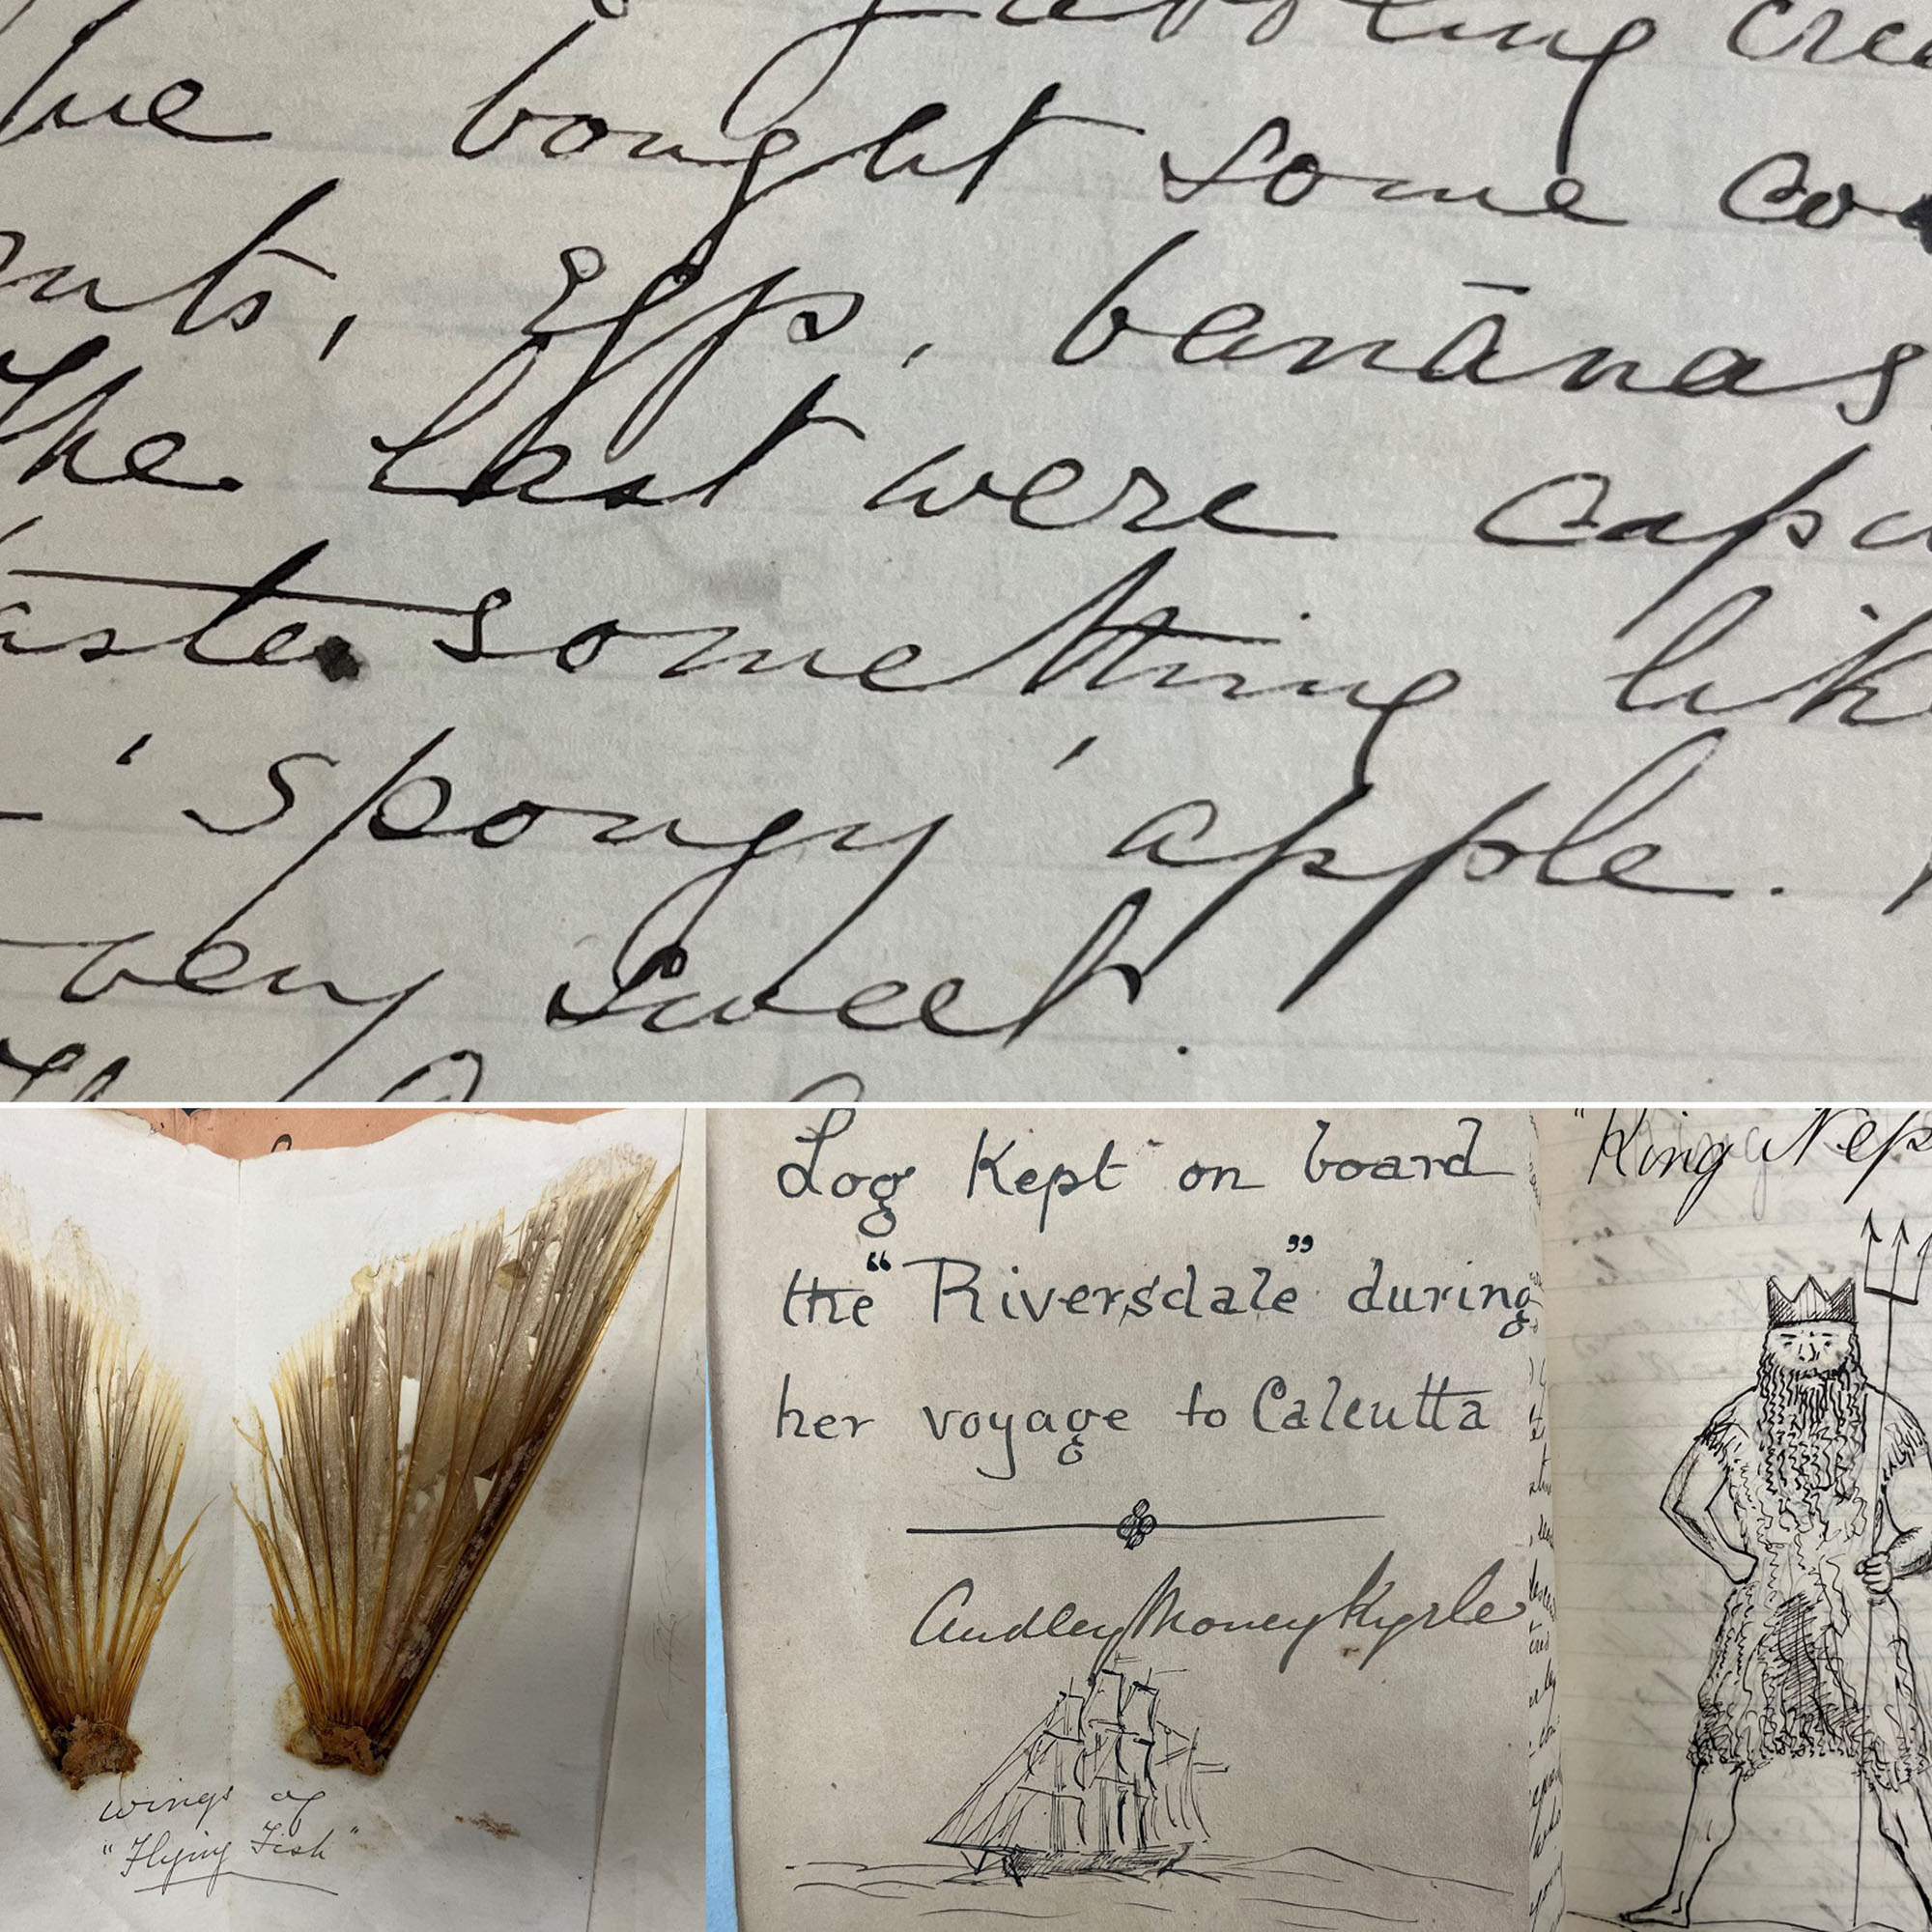 We bought some co
nuts, eggs, banānas
The last were capi
aste something lik
'spongy' apple.
very sweet.
wings of
"Flying Fish"
Log Kept on board
the "Riversdale" during
her voyage to Calcutta
Audley Money Kyrle
"King Nep